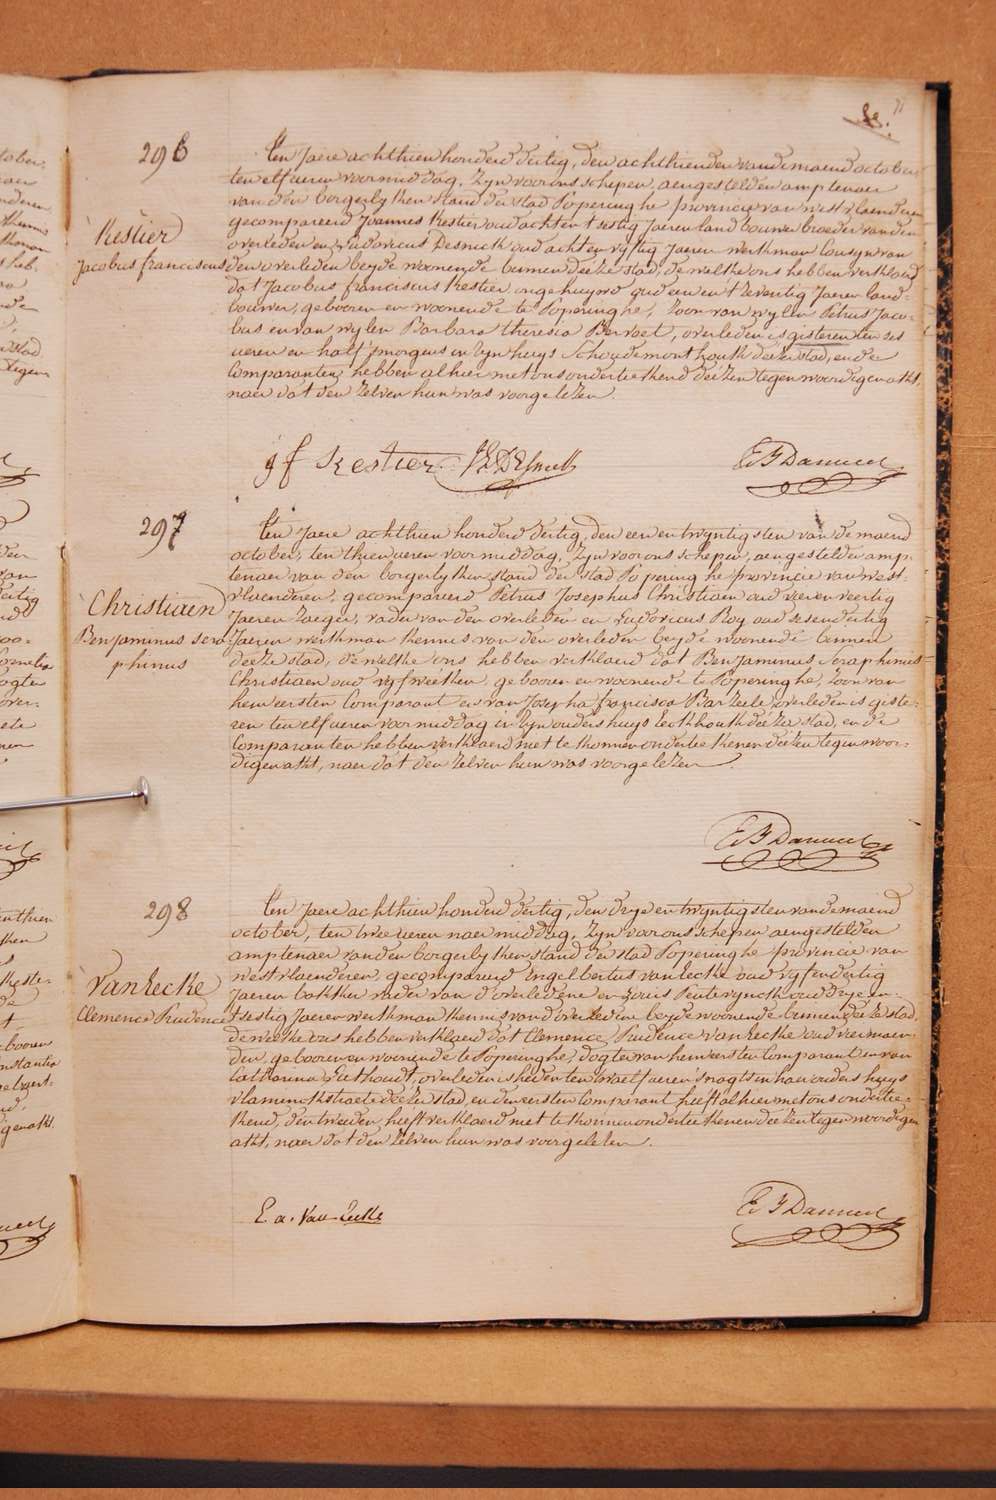 82.
71
296
Kestier
Jacobus franciscus
Ten Jaere achthien honderd dertig, den achthienden van de maend october
ten elf ueren voormiddag, Zyn voor ons schepen, aengestelden amptenaer
van den borgerlyken stand der stad Poperinghe provincie van west vlaenderen
gecompareerd Joannes Kestier oud acht en tsestig Jaeren landbouwer broeder van den
overleden en Ludovicus Desmith oud acht en vyftig Jaeren werkman Cousyn van
den overleden beyde woonende binnen deeze stad, de welke ons hebben verklaerd
dat Jacobus franciscus Kestier ongehuywd oud een en tzeventig Jaeren land-
bouwer, gebooren en woonende te Poperinghe, Zoon van wylen Petrus Jaco-
bus en van wylen Barbara Theresia Bervoet, overleden is gisteren ten ses
ueren en half smorgens in Zyn huys Schoudemonthouk deeze stad, en de
Comparanten hebben alhier met ons onderteekend deezen tegenwoordigen akt,
naer dat den zelven hun was voorgelezen.
j f Kestier
E F Danneel
297
Christiaen
Benjaminus sera-
phinus
Ten Jaere achthien honderd dertig, den een en twyntigsten van de maend
october, ten thien ueren voormiddag, Zyn voor ons schepen, aengestelden amp-
tenaer van den borgerlyken stand der stad Poperinghe provincie van west-
vlaenderen, gecompareerd Petrus Josephus Christiaen oud vier en veertig
Jaeren Zaeger, vader van den overleden en Ludovicus Roy oud ses en dertig
Jaeren werkman kennis van den overleden beyde woonende binnen
deeze stad, de welke ons hebben verklaerd dat Benjaminus Seraphinus
Christiaen oud vyf weeken, gebooren en woonende te Poperinghe, Zoon van
hem eersten Comparant en van Josepha francisca Barzeele, overleden is giste-
ren ten elf ueren voormiddag in Zyn ouders huys leokhouk deeze stad, en de
Comparanten hebben verklaerd niet te konnen onderteekenen deezen tegenwoor-
digen akt, naer dat den zelven hun was voorgelezen.
E F Danneel
298
Vanlecke
Clemence Prudence
Ten Jaere achthien honderd dertig, den drye en twyntigsten van de maend
october, ten twee ueren naermiddag, Zyn voor ons schepen aengestelden
amptenaer van den borgerlyken stand der stad Poperinghe provincie van
west vlaenderen, gecompareerd Engelbertus van lecke oud vyf en dertig
Jaeren bakker vader van d'overledene en Louis Peuterynck oud drye en
tsestig Jaeren werkman kennis van d'overledene beyde woonende binnen deeze stad,
de welke ons hebben verklaerd dat Clemence Prudence Vanlecke oud vier maen-
den, gebooren en woonende te Poperinghe, dogter van hem eersten Comparant en van
Catharina Eethoudt, overleden is heden ten twaelf ueren 's nagts in haer ouders huys
vlaminckstraete deeze stad, en den eersten Comparant heeft alhier met ons ondertee-
kend, den tweeden heeft verklaerd niet te konnen onderteekenen deezen tegenwoordigen
akt, naer dat den zelven hun was voorgelezen.
E. a. Van Lecke
E F Danneel